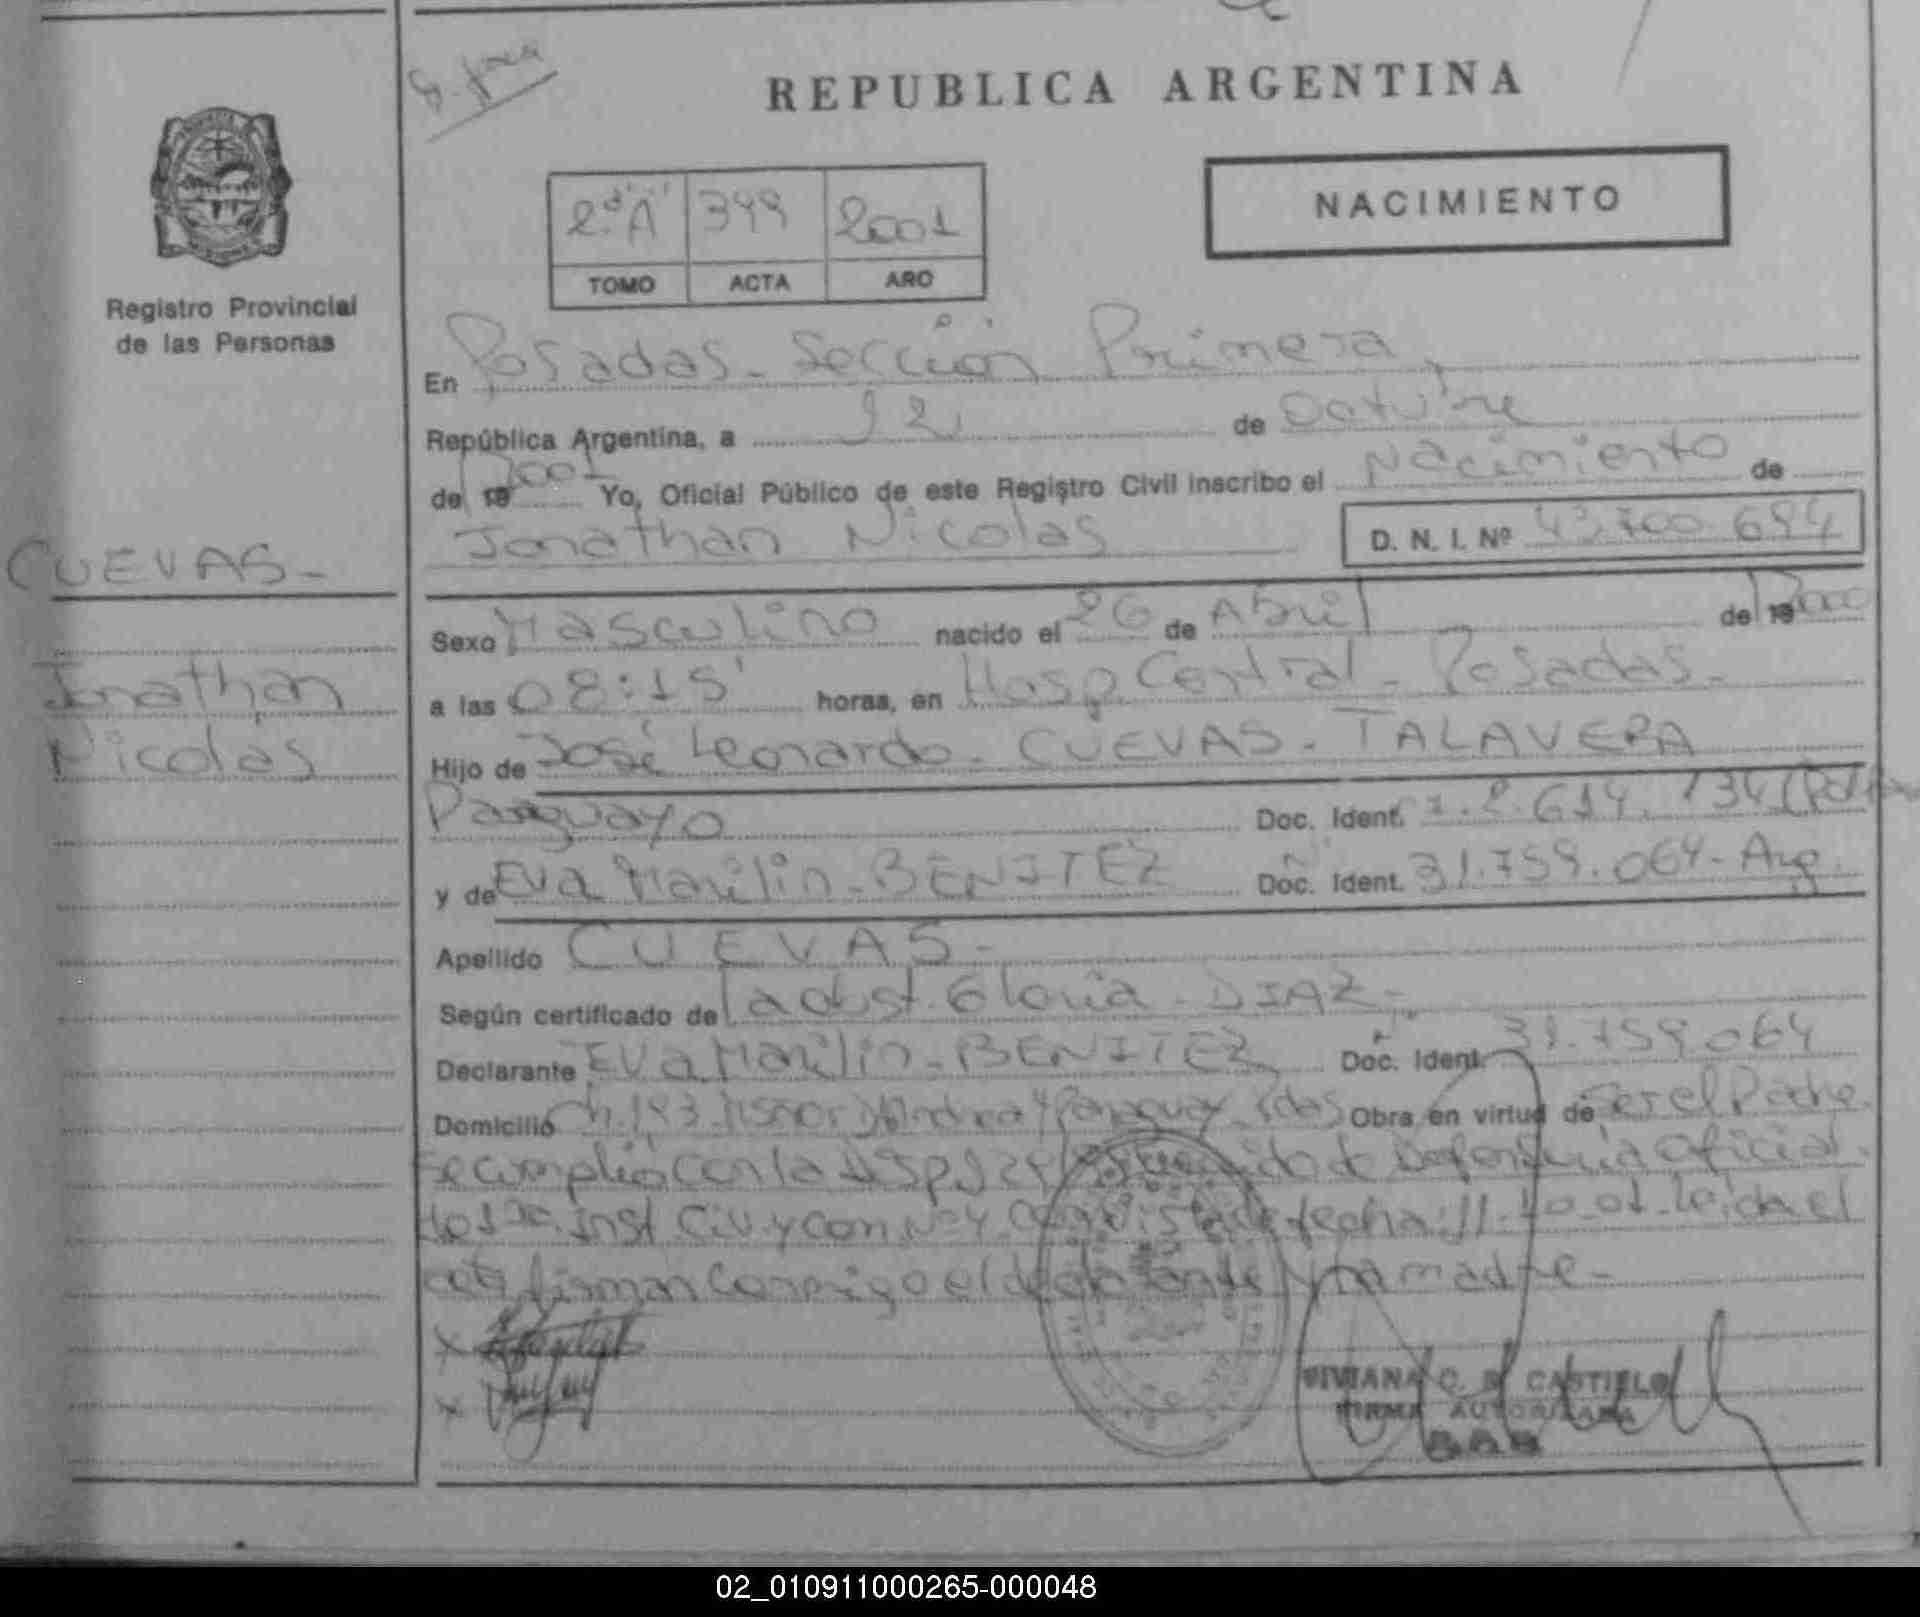 REPUBLICA ARGENTINA
2.ª "A" 399 2001
TOMO ACTA AÑO
NACIMIENTO
Registro Provincial
de las Personas
En Posadas - Sección Primera,
República Argentina, a 12 de Octubre
de 19 2001 Yo, Oficial Público de este Registro Civil inscribo el Nacimiento de
Jonathan Nicolas D. N. I. Nº 43.700.694
CUEVAS -
Jonathan
Nicolás
Sexo Masculino nacido el 26 de Abril de 19 2000
a las 08:15' horas, en Hosp Central - Posadas -
Hijo de José Leonardo - CUEVAS - TALAVERA
Paraguayo Doc. Ident. 1.2.614.134
y de Eva Marilin - BENITEZ Doc. Ident. 31.759.064 - Arg.
Apellido CUEVAS -
Según certificado de la obst. Gloria - DIAZ -
Declarante Eva Marilin - BENITEZ Doc. Ident. 31.759.064
Domicilio Ch. 193 y Paraguay Pdas Obra en virtud de ser el Padre
Se cumplió con la de Defensoría Oficial
Inst. Civ. y Com. Nº 4 fecha: 11-10-01 - Leída el
acta firman conmigo el declarante y la madre -
VIVIANA C. CASTIELO
FIRMA AUTORIZADA
02_010911000265-000048